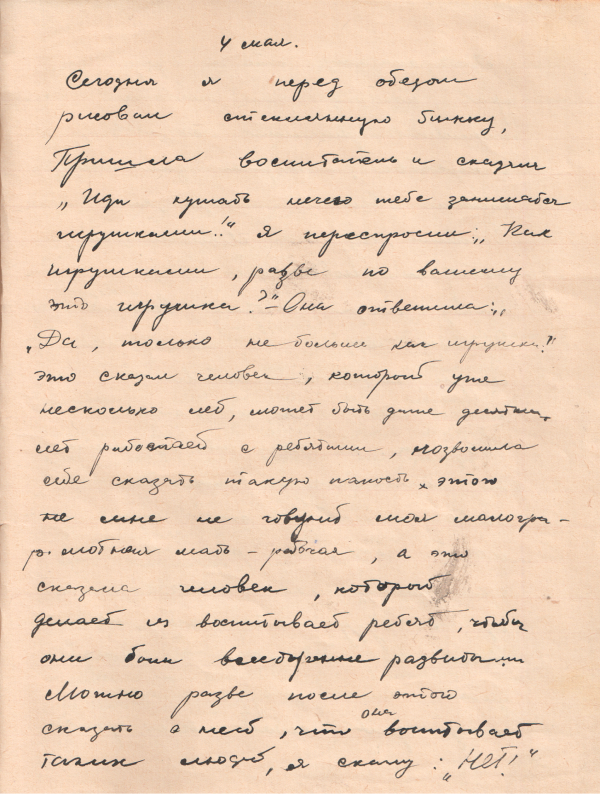 4 мая.
Сегодня я перед обедом
рисовал стеклянную банку,
Пришла воспитатель и сказала
„Иди кушать нечего тебе заниматься
игрушками!“ Я переспросил: „Как
игрушками, разве по вашему
это игрушка?“ – Она ответила:„
„Да, только не больше как игрушка!“
это сказал человек, который уже
несколько лет, может быть даже десятки
лет работает с ребятами, позволила
себе сказать такую пакость, этого
не мне не говорит моя малогра-
мотная мать – рабочая, а это
сказала человек, который
делает из воспитывает ребят, чтобы
они были всесторонне развитыми
Можно разве после этого
сказать о ней, что она воспитывает
таких людей, я скажу: „НЕТ!“